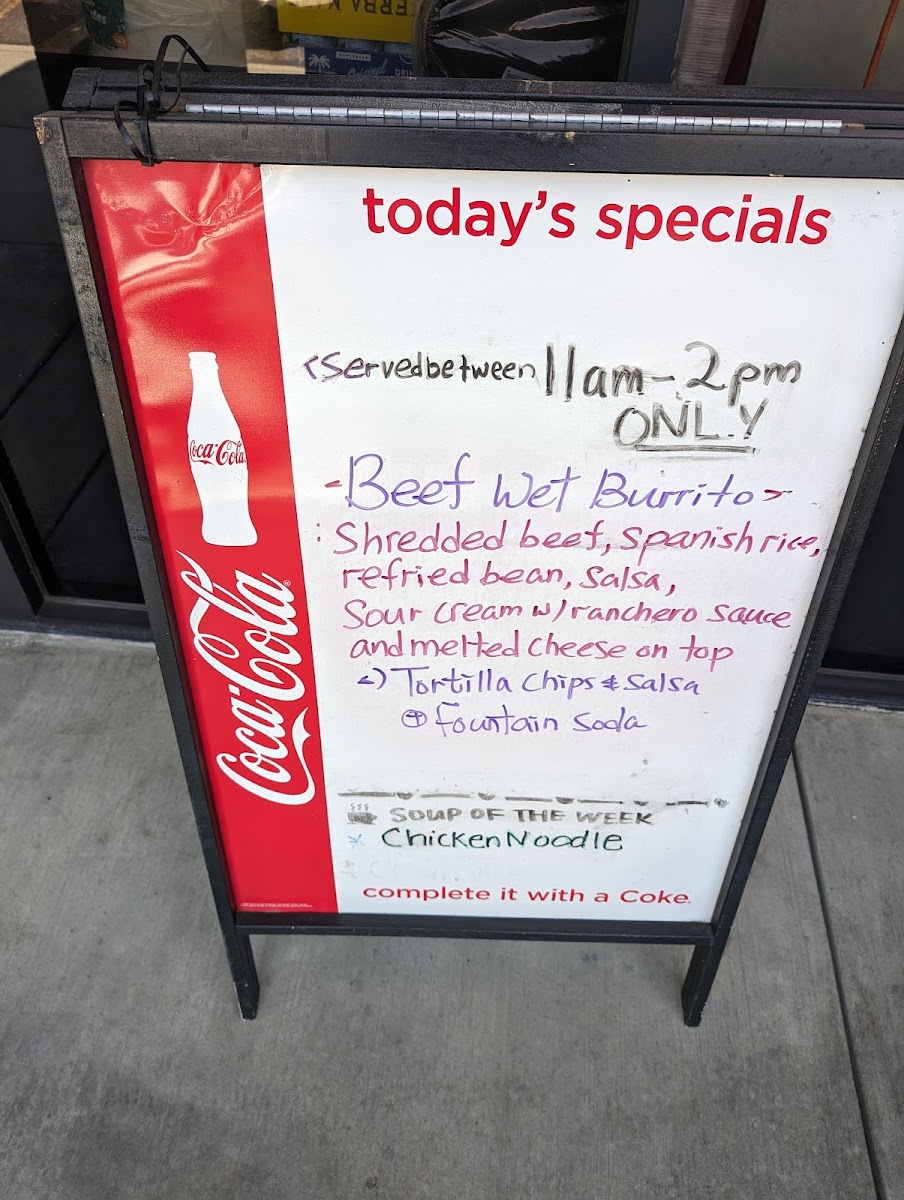 ERBA
Original
DRIN
today's specials
Served between 11am-2pm
ONLY
-Beef Wet Burrito-
Shredded beef, Spanish rice,
refried bean, Salsa,
Sour cream w/ ranchero sauce
and melted cheese on top
Tortilla Chips & Salsa
+ fountain soda
SOUP OF THE WEEK
Chicken Noodle
complete it with a Coke.
Coca-Cola
Coca-Cola